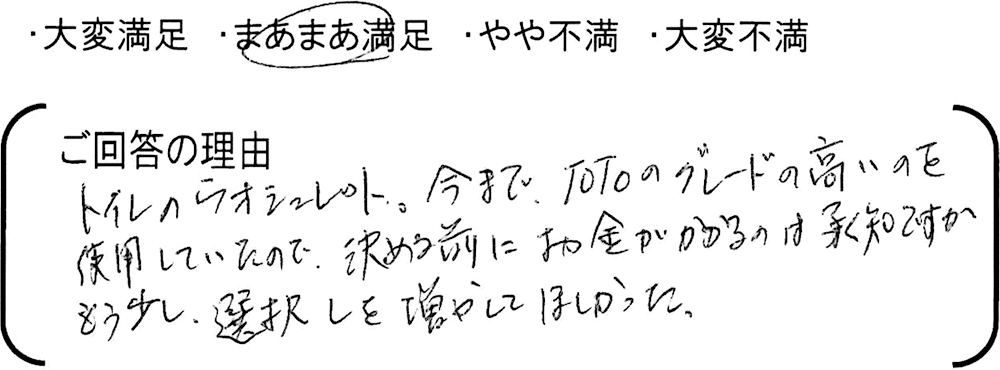 ・大変満足 ・まあまあ満足 ・やや不満 ・大変不満
ご回答の理由
トイレのウオシュレット。今まで、TOTOのグレードの高いのを
使用していたので、決める前にお金がかかるのは承知ですが
もう少し、選択しを増やしてほしかった。